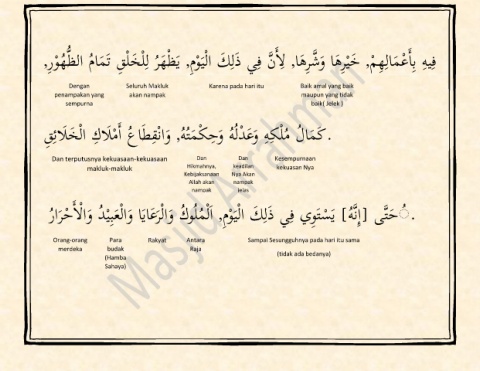 فِيهِ بِأَعْمَالِهِمْ, خَيْرِهَا وَشَّرِهَا, لِأَنَّ فِي ذَلِكَ الْيَوْمِ, يَظْهَرُ لِلْخَلْقِ تَمَامُ الظُّهُوْرِ,
Baik amal yang baik maupun yang tidak baik( Jelek )
Karena pada hari itu
Seluruh Makluk akan nampak
Dengan penampakan yang sempurna
كَمَالُ مُلْكِهِ وَعَدْلُهُ وَحِكْمَتُهُ, وَانْقِطَاعُ أَمْلَاكِ الْخَلَائِقِ.
Kesempurnaan kekuasan Nya
Dan keadilan Nya Akan nampak jelas
Dan Hikmahnya, Kebijaksanaan Allah akan nampak
Dan terputusnya kekuasaan-kekuasaan makluk-makluk
ُحَتَّى [إِنَّهُ] يَسْتَوِي فِي ذَلِكَ الْيَوْمِ, اَلْمُلُوكُ وَالْرَعَايَا وَالْعَبِيْدُ وَالْأَحْرَارُ.
Sampai Sesungguhnya pada hari itu sama (tidak ada bedanya)
Antara Raja
Rakyat
Para budak (Hamba Sahaya)
Orang-orang merdeka
Masjid Arrahman